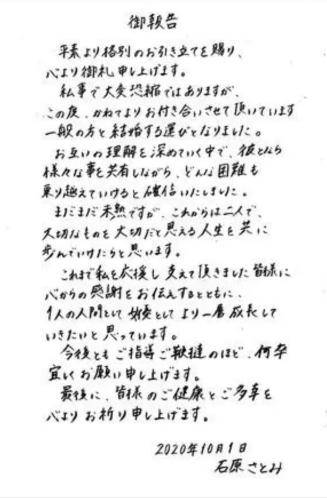 御報告
平素より格別のお引き立てを賜り、
心より御礼申し上げます。
私事で大変恐縮ではありますが、
この度、かねてよりお付き合いさせて頂いています
一般の方と結婚する運びとなりました。
お互いの理解を深めていく中で、彼となら
様々な事を共有しながら、どんな困難も
乗り越えていけると確信いたしました。
まだまだ未熟ですが、これからは二人で、
大切なものを大切だと思える人生を共に
歩んでいけたらと思います。
これまで私を応援し支えて頂きました皆様に
心からの感謝をお伝えするとともに、
1人の人間として 女優として より一層成長して
いきたいと思っています。
今後とも ご指導ご鞭撻のほど、何卒
宜しくお願い申し上げます。
最後に、皆様のご健康とご多幸を
心よりお祈り申し上げます。
2020年10月1日
石原さとみ